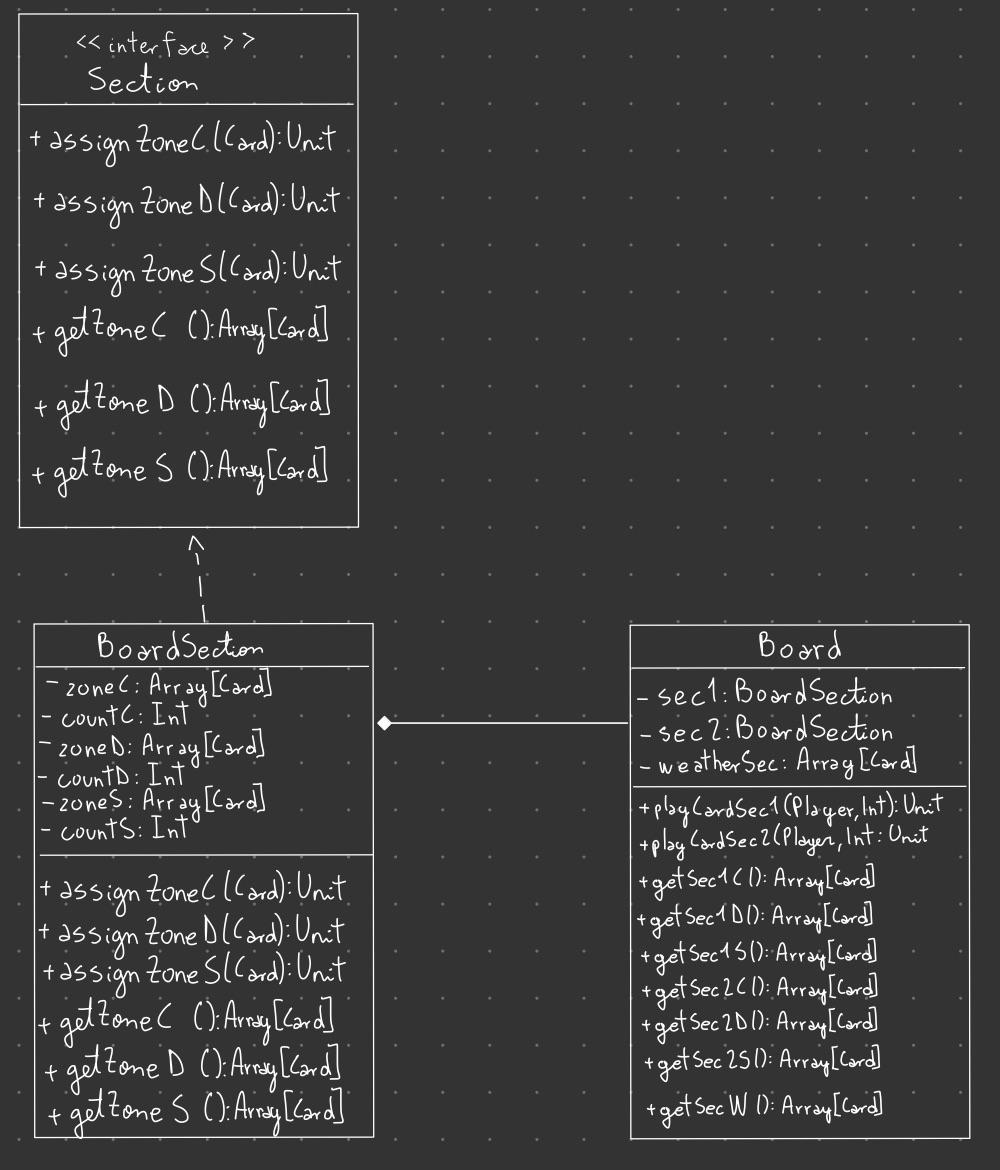 << interface >>
Section
+ assignZoneC(Card):Unit
+ assignZoneD(Card):Unit
+ assignZoneS(Card):Unit
+ getZoneC ():Array[Card]
+ getZone D ():Array[Card]
+ getZone S ():Array[Card]
BoardSection
- zoneC: Array[Card]
- countC: Int
- zoneD: Array[Card]
- countD: Int
- zoneS: Array[Card]
- countS: Int
+ assignZoneC(Card):Unit
+ assignZoneD(Card):Unit
+ assignZoneS(Card):Unit
+ getZoneC ():Array[Card]
+ getZone D ():Array[Card]
+ getZone S ():Array[Card]
Board
- sec1: BoardSection
- sec2: BoardSection
- weatherSec: Array[Card]
+playCardSec1(Player,Int):Unit
+playCardSec2(Player,Int:Unit
+getSec1C(): Array[Card]
+getSec1D(): Array[Card]
+getSec1S(): Array[Card]
+getSec2C(): Array[Card]
+getSec2D(): Array[Card]
+getSec2S(): Array[Card]
+getSecW(): Array[Card]